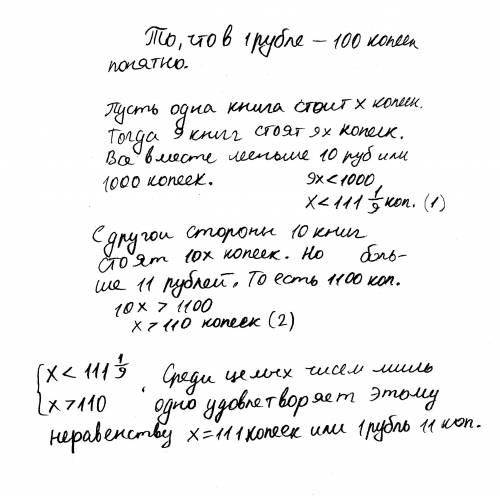 То, что в 1 рубле – 100 копеек
понятно.
Пусть одна книга стоит x копеек.
Тогда 9 книг стоят 9x копеек.
Все вместе меньше 10 руб или
1000 копеек. 9x < 1000
x < 111 1/9 коп. (1)
С другой стороны 10 книг
стоят 10x копеек. Но боль-
ше 11 рублей. То есть 1100 коп.
10x > 1100
x > 110 копеек (2)
{ x < 111 1/9
x > 110 . Среди целых чисел лишь
одно удовлетворяет этому
неравенству x = 111 копеек или 1 рубль 11 коп.